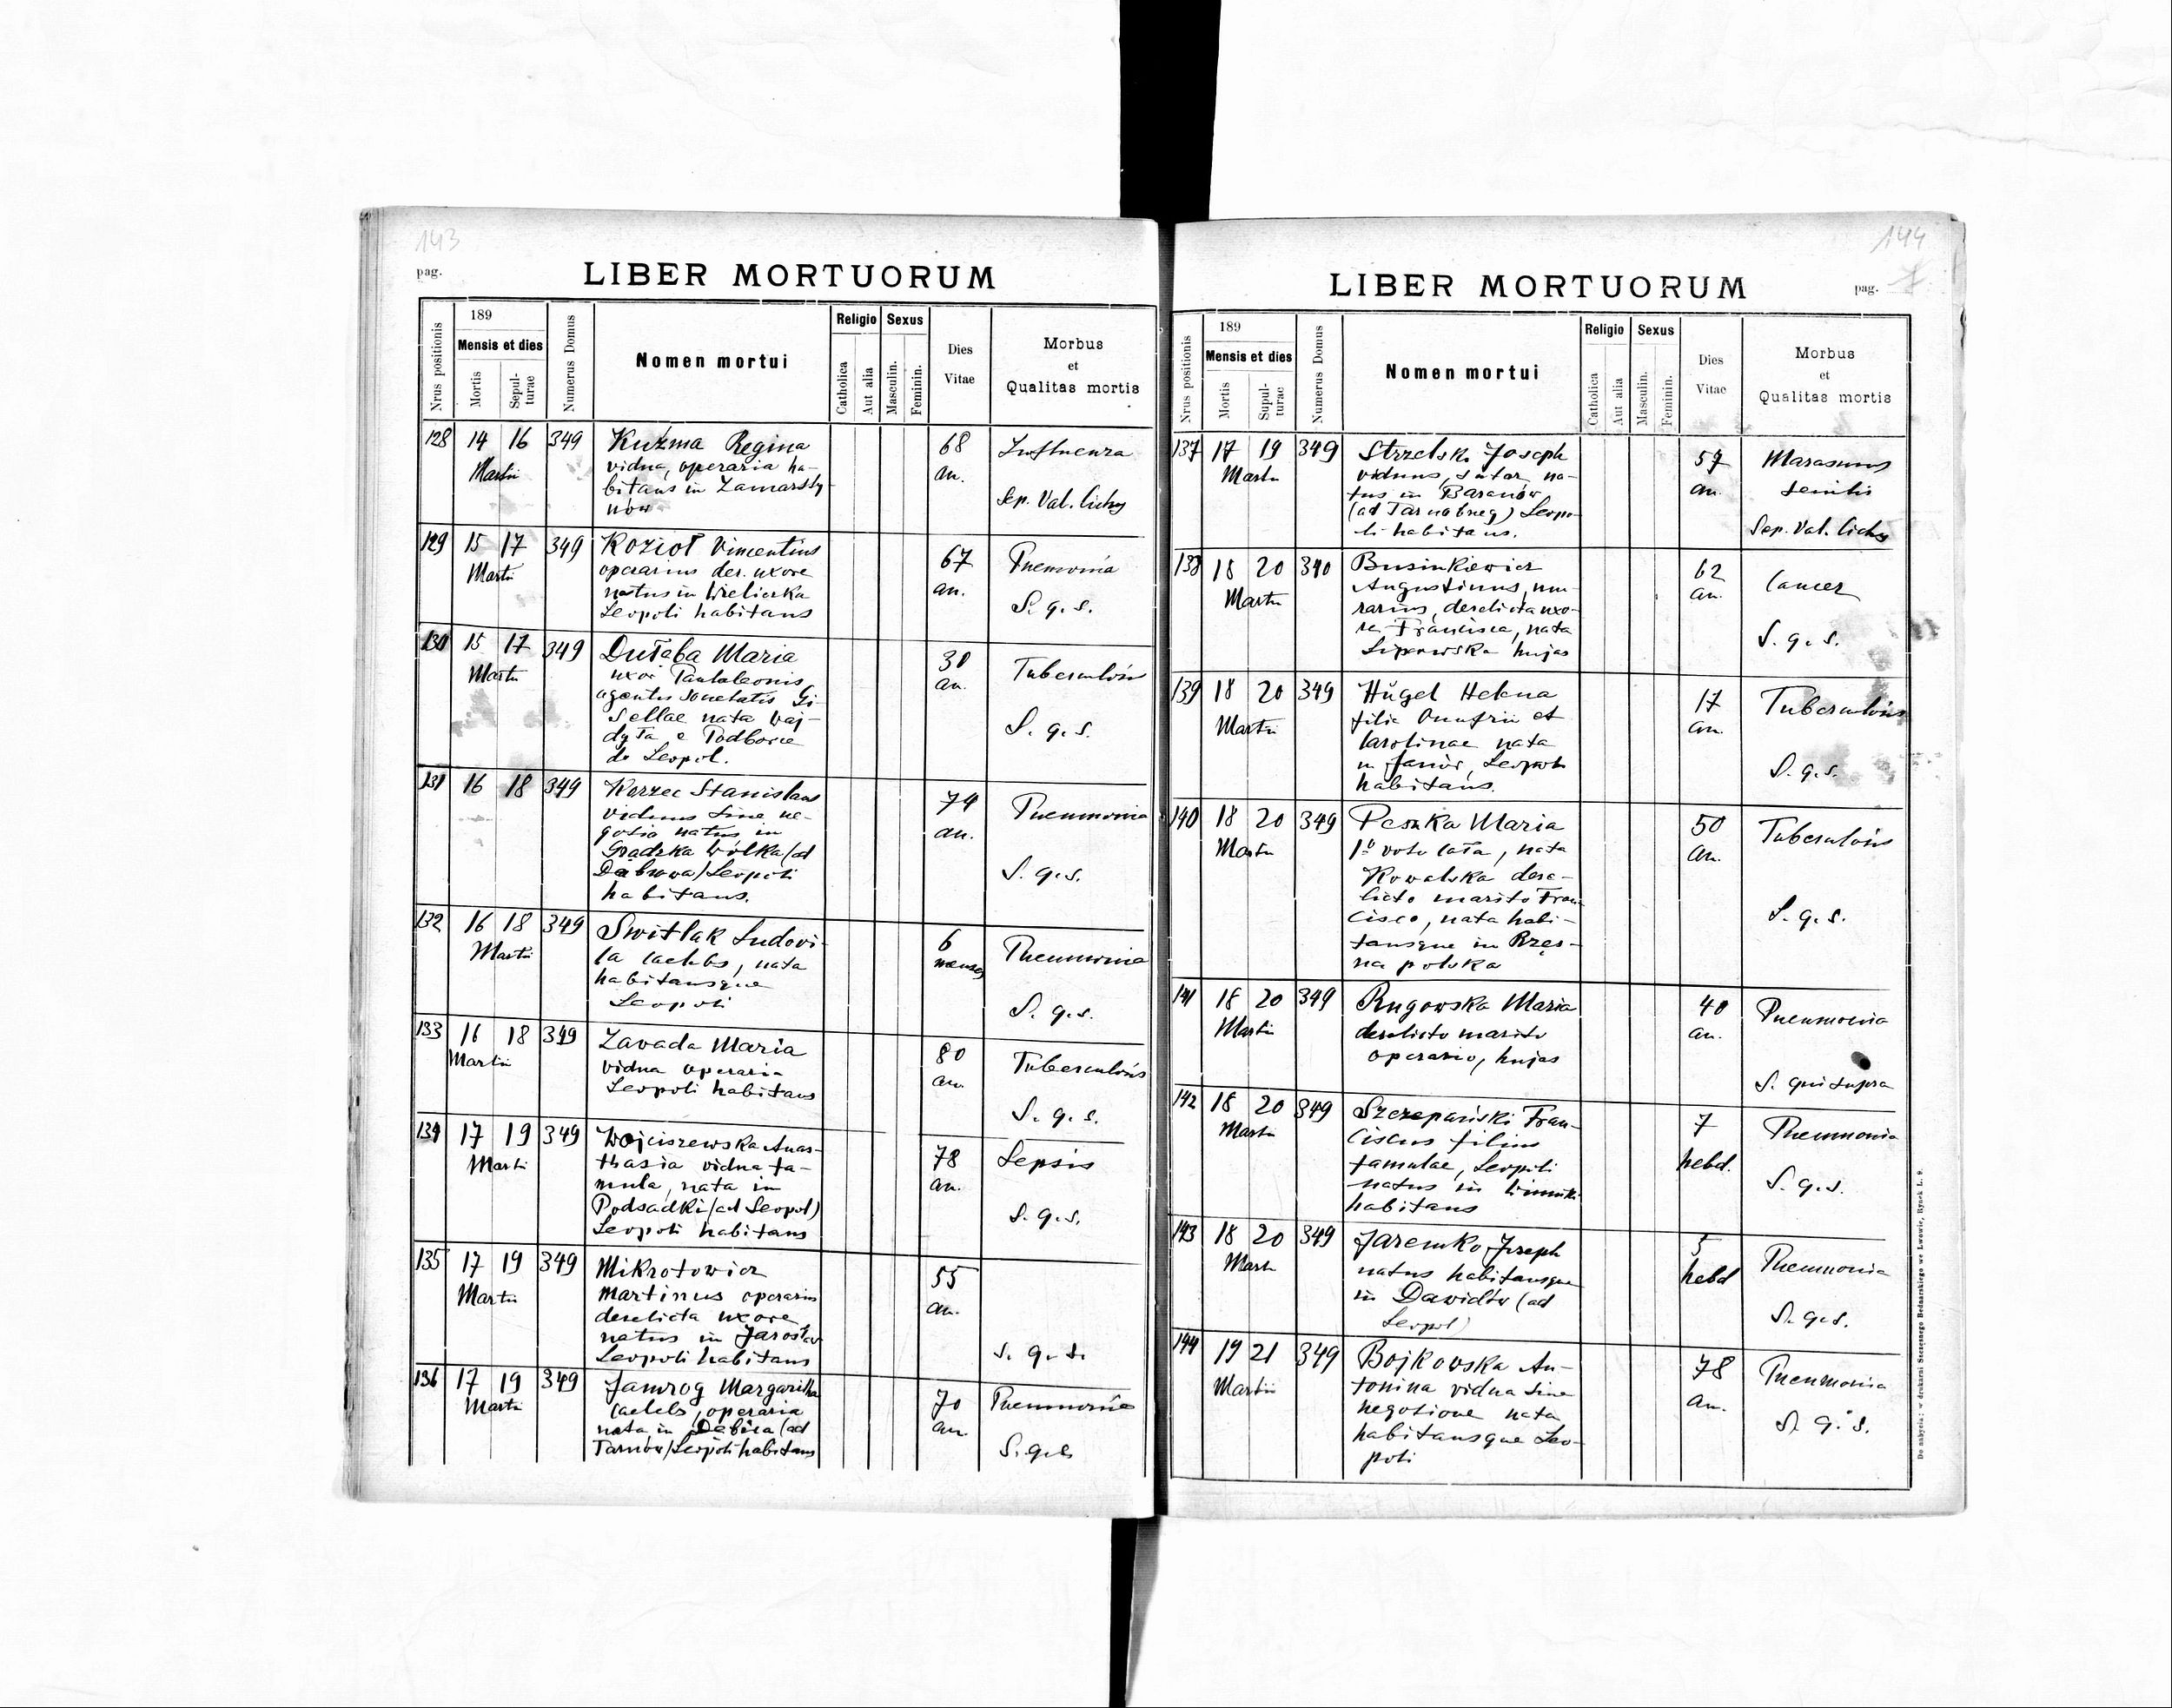 143
pag.
LIBER MORTUORUM
Nrus positionis
189
Mensis et dies
Mortis
Sepul-
turae
Numerus Domus
Nomen mortui
Religio
Catholica
Aut alia
Sexus
Masculin.
Feminin.
Dies
Vitae
Morbus
et
Qualitas mortis
128 14 16 349 Kuźma Regina 68 Influenza
Martii vidua, operaria ha- an.
bitans in Zamarsty- Sep. Val. Cichy
nów
129 15 17 349 Kozioł Vincentius 67 Pnemonia
Martii operarius der. uxore an.
natus in Wieliczka S. q. s.
Leopoli habitans
130 15 17 349 Dułaba Maria 30 Tuberculosis
Martii uxor Pantaleonis an.
agentis societatis Gi-
sellae nata Waj- S. q. s.
dyła, e Podborce
de Leopol.
131 16 18 349 Korzec Stanislaus 74 Pneumonia
viduus sine ne- an.
gotio natus in
Grądzka Wólka (ad S. q. s.
Dąbrowa) Leopoli
habitans.
132 16 18 349 Switlak Ludovi- 6 Pneumonia
Martii ca caelebs, nata menses
habitansque
Leopoli S. q. s.
133 16 18 349 Zavada Maria 80 Tuberculosis
Martii vidua operaria an.
Leopoli habitans S. q. s.
134 17 19 349 Wojciszewska Anas- 78 Sepsis
Martii thasia vidua fa- an.
mula, nata in
Podsadki (ad Leopol) S. q. s.
Leopoli habitans
135 17 19 349 Mikrotowicz 55
Martii Martinus operarius an.
derelicta uxore
natus in Jarosław S. q. s.
Leopoli habitans
136 17 19 349 Jamrog Margaritha 70 Pneumonia
Martii caelebs, operaria an.
nata in Dębica (ad S. q. s.
Tarnów) Leopoli habitans
144
pag.
LIBER MORTUORUM
Nrus positionis
189
Mensis et dies
Mortis
Supul-
turae
Numerus Domus
Nomen mortui
Religio
Catholica
Aut alia
Sexus
Masculin.
Feminin.
Dies
Vitae
Morbus
et
Qualitas mortis
137 17 19 349 Strzelski Joseph 57 Marasmus
Martii viduus, sutor na- an. senilis
tus in Baranów
(ad Tarnobrzeg) Leopo- Sep. Val. Cichy
li habitans.
138 18 20 340 Businkiewicz 62 Cancer
Martii Augustinus, mu- an.
rarius, derelicta uxo-
re Francisca, nata S. q. s.
Lipowska hujas
139 18 20 349 Hügel Helena 17 Tuberculosis
Martii filia Onufrii et an.
Carolinae nata
in Janów, Leopoli S. q. s.
habitans.
140 18 20 349 Peszka Maria 50 Tuberculosis
Martii 1º voto Cała, nata an.
Kowalska dere-
licto marito Fran-
cisco, nata habi- S. q. s.
tansque in Rzęs-
na polska
141 18 20 349 Rugowska Maria 40 Pneumonia
Martii derelicto marito an.
operario, hujas S. qui supra
142 18 20 349 Szczepański Fran- 7 Pneumonia
Martii ciscus filius hebd.
famulae, Leopoli S. q. s.
natus in Winniki
habitans
143 18 20 349 Jaremko Joseph 5 Pneumonia
Marti natus habitansque hebd
in Dawidów (ad S. q. s.
Leopol)
144 19 21 349 Bojkowska An- 78 Pneumonia
Martii tonina vidua sine an.
negotione nata S. q. s.
habitansque Leo-
poli
Do nabycia: w drukarni Szczęsnego Bednarskiego we Lwowie, Rynek L. 9.